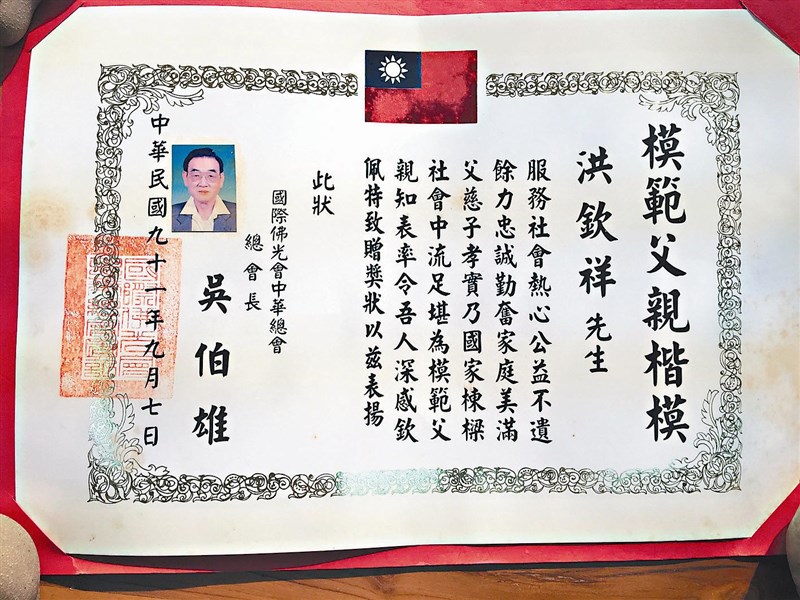 模範父親楷模
洪欽祥先生
服務社會熱心公益不遺
餘力忠誠勤奮家庭美滿
父慈子孝實乃國家棟樑
社會中流足堪為模範父
親知表率令吾人深感欽
佩特致贈獎狀以茲表揚
此狀
國際佛光會中華總會
總會長
吳伯雄
中華民國九十一年九月七日